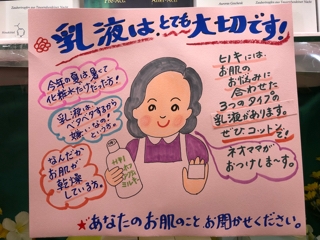 乳液は、とても大切です!
今年の夏は暑くて
化粧水だけだった方!
乳液は、
ベタベタするから
嫌いなの!
という方。
なんだか
お肌が
乾燥
している方。
ヒノキには、
お肌の
お悩みに
合わせた
3つのタイプの
乳液があります。
ぜひコットンで!
ネオママが
おつけしま〜す。
★あなたのお肌のこと お聞かせください。